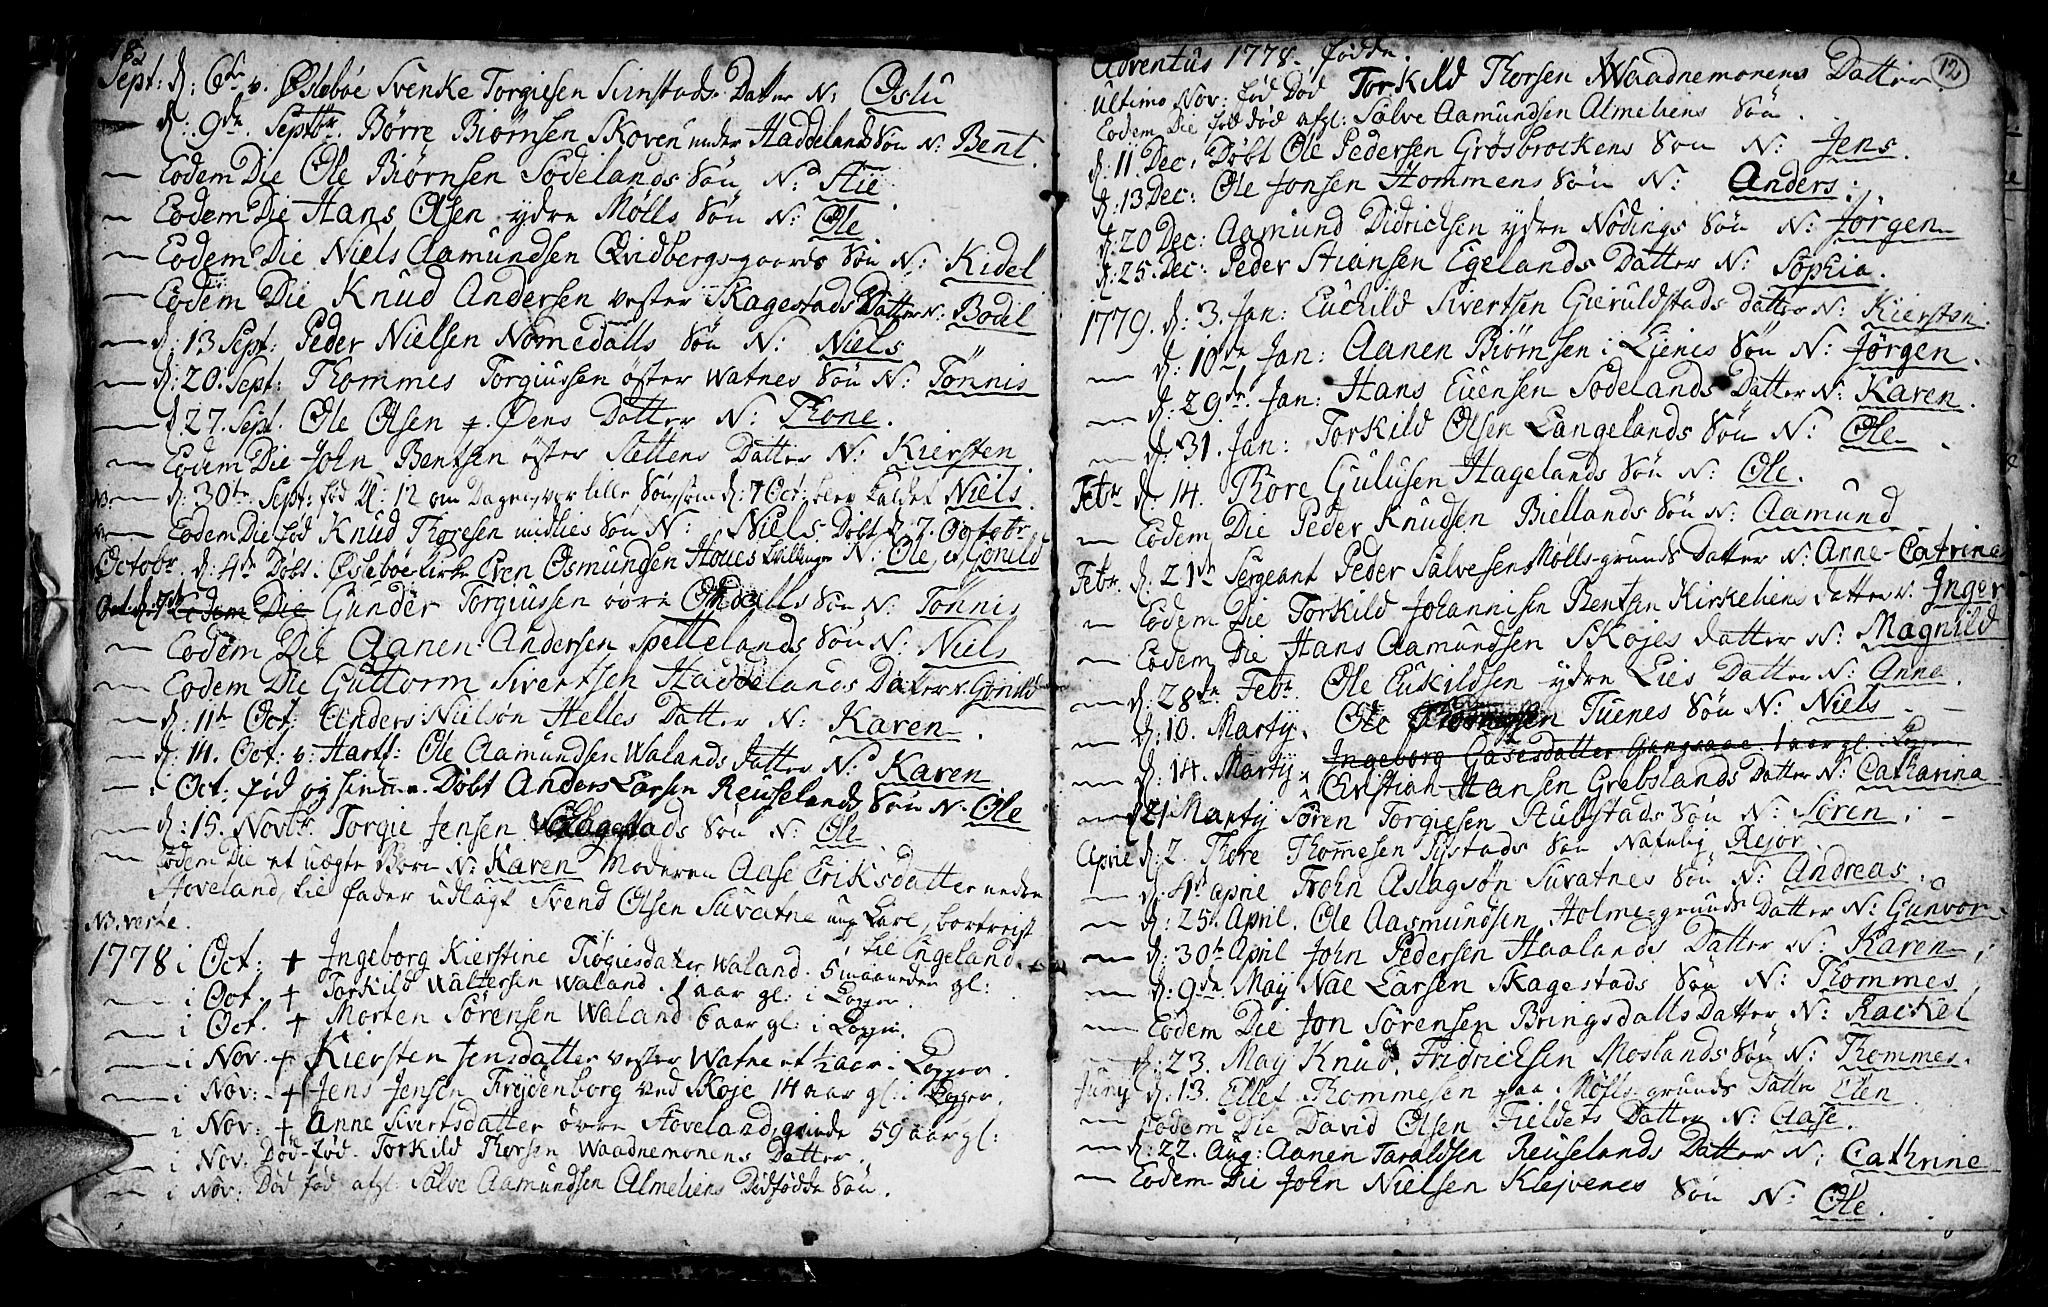 78
Sept: d: 6te v. Øslebøe Svenke Torgiesen Sinstads Datter N: Oslu
d: 9de Septbr. Børre Biørnsen Skoven under Haddelands Søn N: Bent.
— Eodem Die Ole Biørnsen Sodelands Søn N: Stie
— Eodem Die Hans Olsen ydre Mølls Søn N: Ole
— Eodem Die Niels Aamundsen Qvidbergs-gaards Søn N: Kidel
— Eodem Die Knud Andersen vester Skagestads Datter N: Bodel
— d: 13 Sept: Peder Nielsen Nomedalls Søn N: Niels
— d: 20. Sept: Thommes Torgiussen øster Watnes Søn N: Tönnis
— d: 27. Sept. Ole Olsen Øens Datter N: Thone.
— Eodem Die John Bentsen øster Slettens Datter N: Kiersten
NB. — d: 30te Sept: fød Kl: 12 om Dagen, vor lille Søn, som d: 7 Oct: blev kaldet Niels.
— Eodem Die fød Knud Thoresen midlies Søn N: Niels Döbt d. 7. Octobr
Octobr d: 4de Döbt. Øslebøe Kirke Even Osmundsen Houes tvillinger N: Ole, et Gonild
Oct d: 7de Eodem Die Gunder Torgiussen øvre Søn N: Tönnis
— Eodem Die Aanen Andersen Spellelands Søn N: Niels
— Eodem Die Guttorm Sivertsen Haddelands Datter N. Gonild
— d: 11te Oct: Anders Nielsøn Helles Datter N: Karen.
— d: 14. Oct: v: Hartf: Ole Aamundsen Walands Datter N: Karen
— i Oct: fød og Döbt Anders Larsen Reuselands Søn N. Ole
— d: 15. Novbr. Torgie Jensen Søn N: Ole
— Eodem Die et uægte Barn N: Karen Moderen Aase Eriksdatter neder
Hoveland, til fader udlagt Svend Olsen Suvatne ung Karl, bortreist
NB. verte. til Engeland.
1778 i Oct: + Ingeborg Kierstine Tiøgiesdatter Waland. 5 maaneder gl:
— i Oct. + Torkild Waltersen Waland. 1 aar gl: i Kopper.
— i Oct. + Morten Sörensen Waland 6 aar gl: i Kopper.
— i Nov. + Kiersten Jensdatter vester Watne et 1/2 aar i Kopper.
— i Nov: + Jens Jensen Frydenborg ved Skoje 14 aar gl: i Kopper.
— i Nov: + Anne Sivertsdatter övre Hoveland, qvinde 59 aar gl:
— i Nov. Död-fød. Torkild Thorsen Waadnemonens Datter.
— i Nov: Död fød afgl: Salve Aamundsen Almeliens Dödfödde Søn.
Adventus 1778. födde.
12
Ultimo Nov: fød Död Torkild Thorsen Waadnemonens Datter
Eodem Die fød død afgl: Salve Aamundsen Almeliens Søn.
d: 11 Dec: Döbt Ole Pedersen Grösbrockens Søn N: Jens.
d: 13 Dec: Ole Jonsen Hommens Søn N: Anders.
d: 20 Dec: Aamund Didrichsen ydre Nödings Søn N: Jörgen
d: 25. Dec: Peder Stiansen Egelands Datter N: Sophia.
1779. d: 3. Jan: Euchild Sivertsen Gieruldstads datter N: Kiersten.
— d: 10de Jan: Aanen Biørnsen i Lienes Søn N: Jörgen.
— d: 29de Jan: Hans Evensen Sodelands Datter N: Karen.
— d: 31. Jan: Torkild Olsen Langelands Søn N: Ole
Febr d. 14. Thore Gulusen Hagelands Søn N: Ole.
— Eodem Die Peder Knudsen Biellands Søn N: Aamund
Febr. d: 21de Sergeant Peder Salvesen Mølls-grunds Datter N: Anne-Catrina
— Eodem Die Torkild Johannisen Bentsen Kirkeliens datter N. Inger
— Eodem Die Hans Aamundsen Skojes datter N: Magnild
— d: 28de Febr. Ole Eukildsen ydre Lies Datter N: Anne
— d: 10. Marty. Ole Tuenes Søn N: Niels
Ingeborg 1 aar gl. i Kopper
— d: 14. Marty Christian Hansen Grebslands Datter N: Catharina
— d 21 Marty Sören Torgiesen Stubstads Søn N: Sören.
April d: 2. Thore Thommesen Systads Søn Natulig Rejor
— d: 4de April Trohn Aslagsøn Suvatnes Søn N: Andreas.
— d: 25te April. Ole Aasmundsen Holme-grunds Datter N: Gunvor
— d: 30te April John Pedersen Haalands Datter N: Karen
— d: 9de May Nae Larsen Skagestads Søn N: Thommes
— Eodem Die Jon Sörensen Bringsdalls Datter N: Rackel
— d: 23. May Knud Fridrichsen Moslands Søn N: Thommes.
Juny d: 13. Ellef Thommesen paa Mölls grunds Datter Elen
— Eodem Die David Olsen Fieldets Datter N: Aase.
— d: 22. Aug: Aanen Taraldsen Reuselands Datter N: Cathrine
— Eodem Die John Nielsen Klejvenes Søn N: Ole.